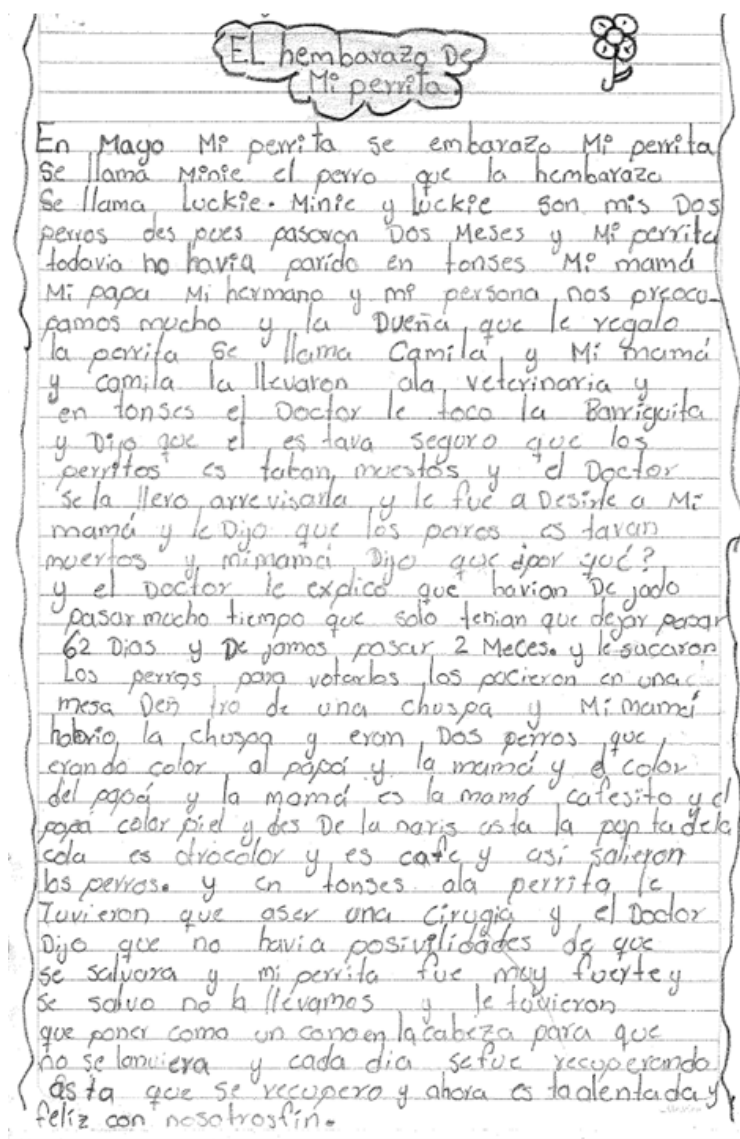 EL hembarazo De
Mi perrita.
En Mayo Mi perrita se embarazo Mi perrita
se llama Minie el perro que la hembarazo
se llama Luckie. Minie y luckie son mis Dos
perros des pues pasaron Dos Meses y Mi perrita
todavia no havia parido en tonses Mi mamá
Mi papa Mi hermano y mi persona, nos preocu-
pamos mucho y la Dueña, que le regalo
la perrita se llama Camila, y Mi mamá
y camila la llevaron ala veterinaria y
en tonses el Doctor le toco la Barriguita
y Dijo que el es tava seguro que los
perritos es taban muestos y el Doctor
se la llevo arrevisarla y le fue a Desirle a Mi
mamá y le Dijo que los perros es tavan
muertos y mimamá Dijo que ¿por qué?
y el Doctor le explicó que havian De jado
pasar mucho tiempo que solo tenian que dejar pasar
62 Dias y De jamos pasar 2 Meces. y le sacaron
Los perros para votarlos los pocieron en una
mesa Den tro de una chuspa y Mi mamá
habrio la chuspa y eran Dos perros que
eran do color al pápá y la mamá y el color
del papá y la mamá es la mamá cafesito y el
papá color piel y des De la naris asta la pun ta dela
cola es otrocolor y es cafe y así salieron
los perros. y en tonses ala perrita le
Tuvieron que aser una cirugia y el Doctor
Dijo que no havia posivilidades de que
se salvara y mi perrita fue muy fuerte y
se salvo no la llevamos y le tuvieron
que poner como un cono en la cabeza para que
no se lamiera y cada dia sefue recuperando
as ta que se recupero y ahora es taalentada y
feliz con nosotrosfin.